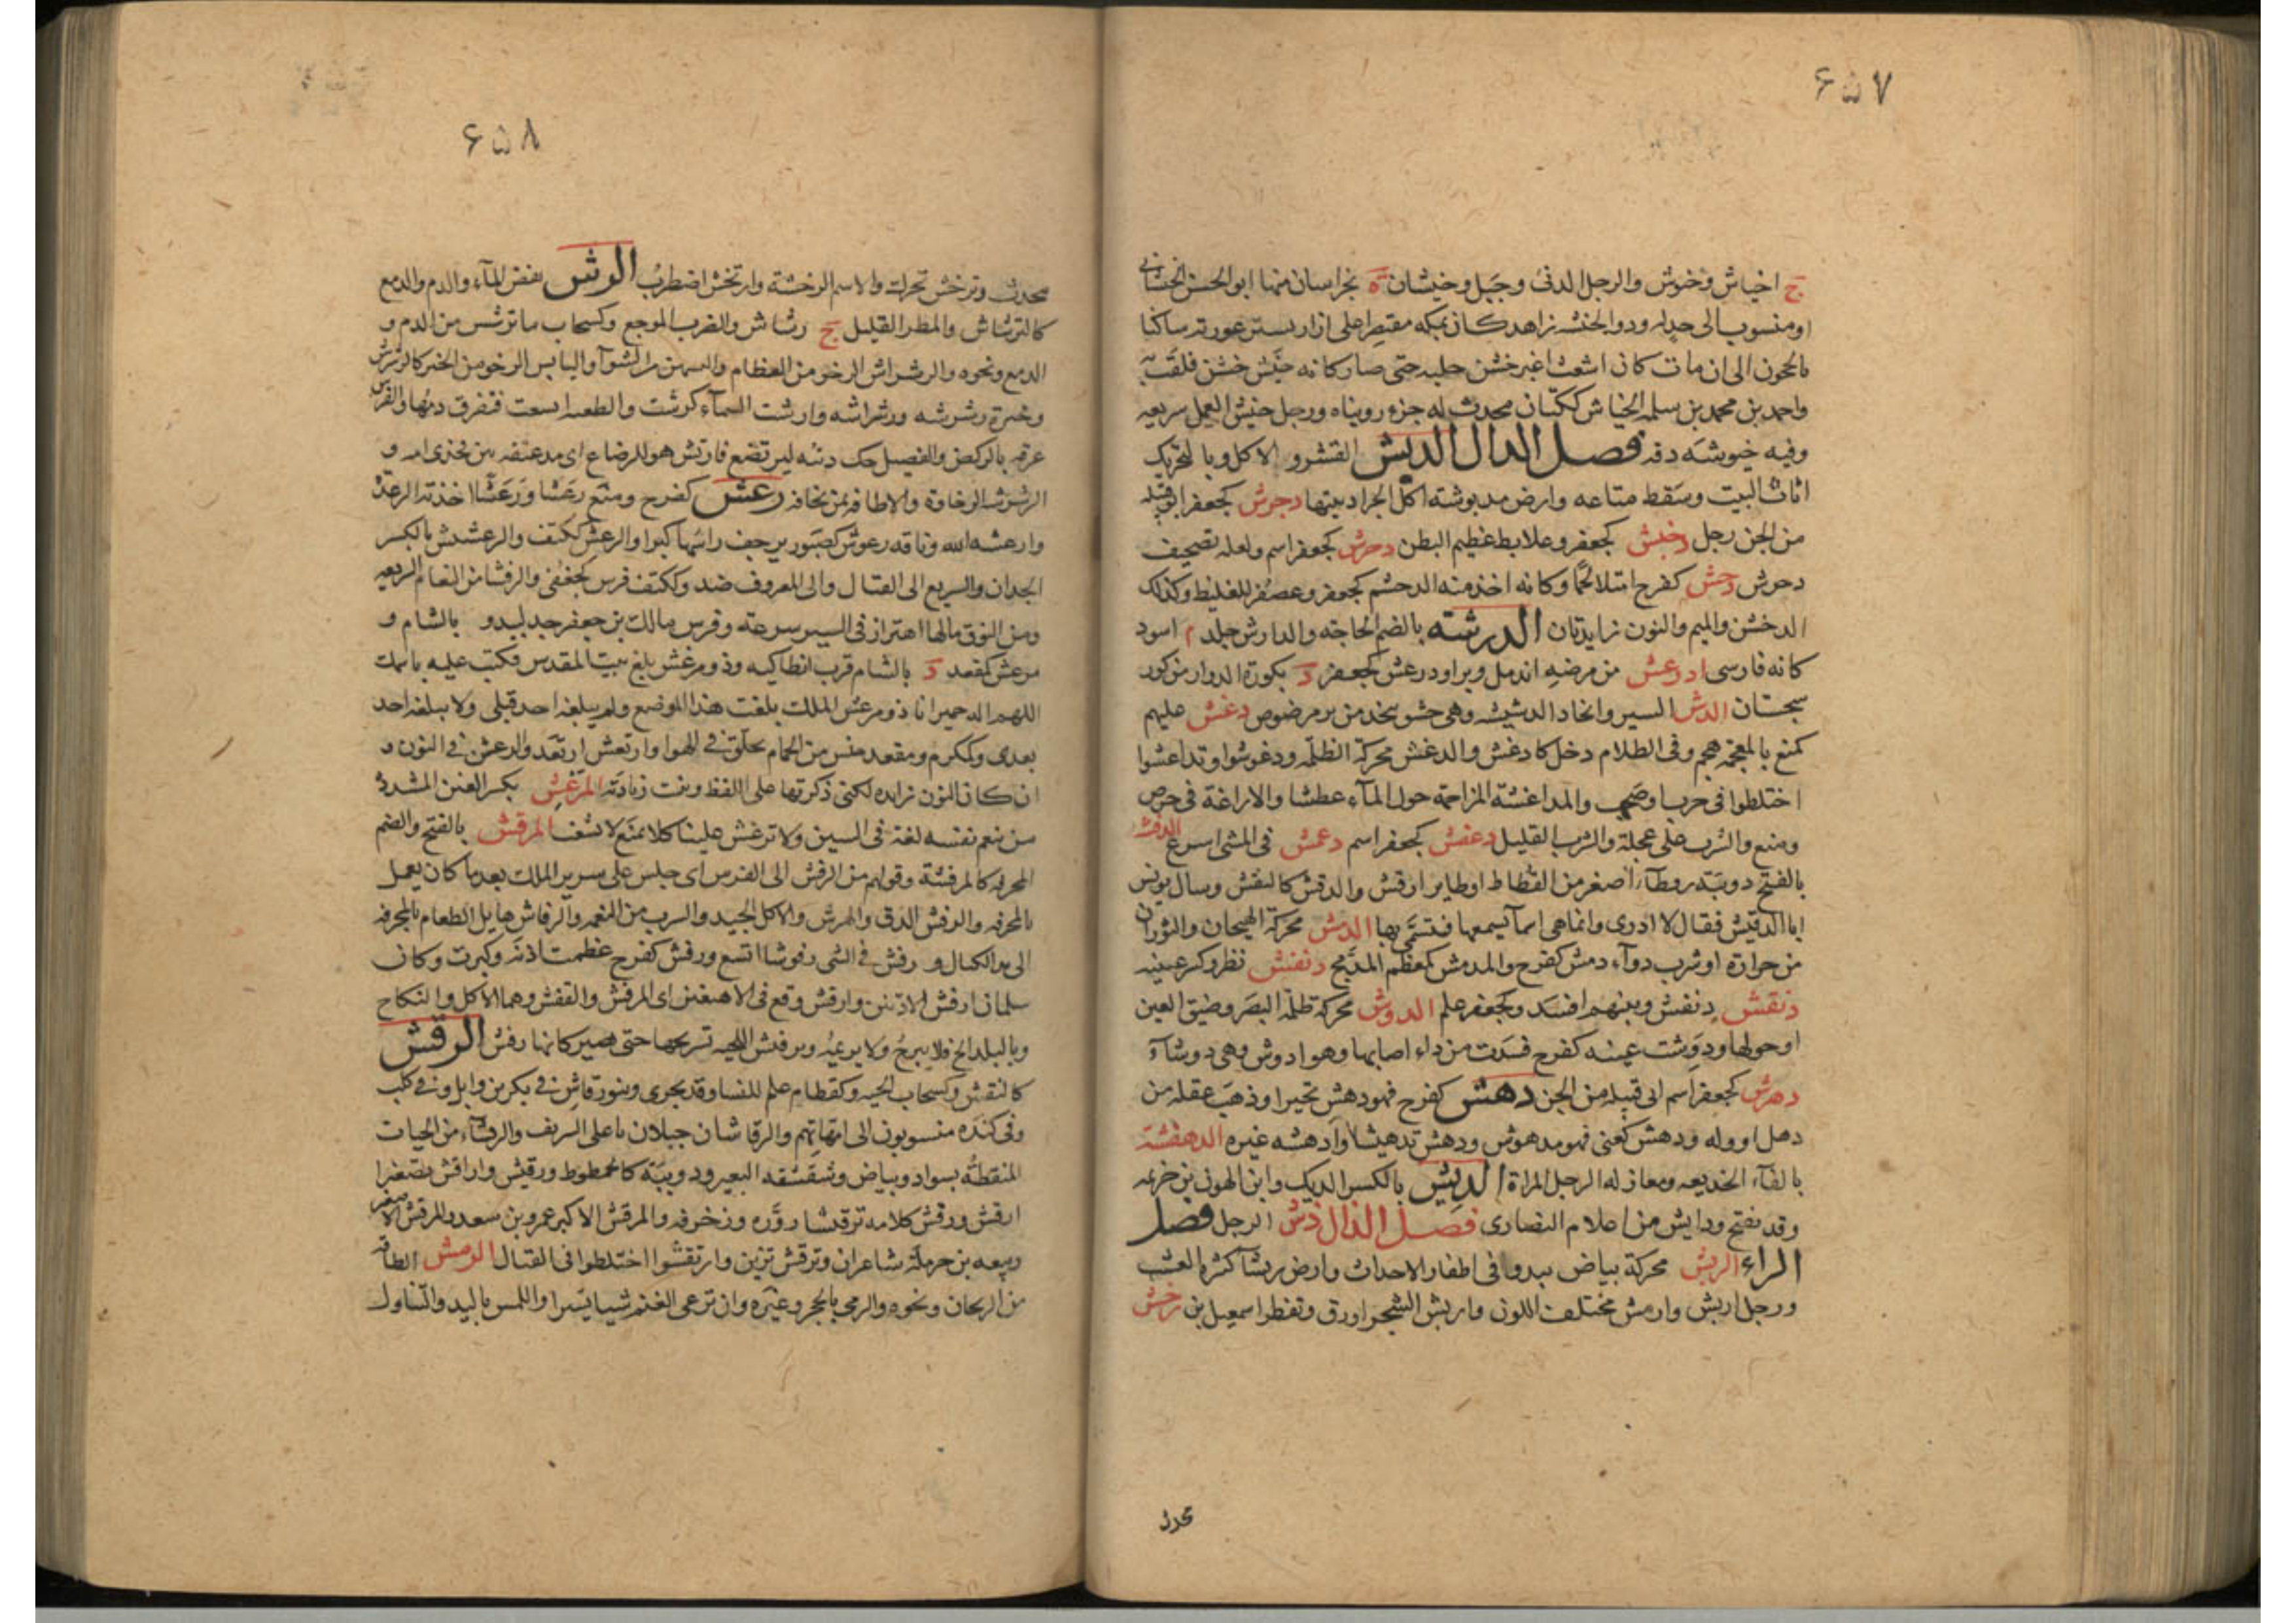 ۶۵۷
ج اخياش وخيوش والرجل الدنئ وجبل وخيشان ة بخراسان منها ابو الحسن الخيشانى
او منسوب الى جداره وذو الخنشه زاهد كان بمكه مقتصرا على ازار يستر عورته ساكنا
بالحجون الى ان مات كان اشعث اغبر خشن جلده حتى صار كانه خيش خشن فلقب به
واحمد بن محمد بن سلمه الخياش ككتان محدث له جزء رويناه ورجل خيش العمل سريعه
وفيه خيوشه دقه فصل الدال الدبش القشر والاكل وبالتحريك
اثاث البيت وسقط متاعه وارض مدبوشته اكل الجراد بيتها دحرش كجعفر ابو قبيله
من الجن رجل دخبش كجعفر وعلابط عظيم البطن دحرش كجعفر اسم ولعله تصحيف
دحوش دخش كفرح امتلا لحما وكانه اخذ منه الدخشم كجعفر وعصفر للغليظ وكذلك
الدخشن والميم والنون زايدتان الدرشه بالضم الحاجة والدارش جلد م اسود
كانه فارسى ادرعش من مرضه اندمل وبرا ودرعش كجعفر د بكورة الدوار من كور
سجستان الدش السير واتخاد الدشيشه وهى حشو يتخذ من بر مرضوض دغش عليهم
كمنع بالمعجمة هجم وفى الظلام دخل كادغش والدغش محركة الظلمه ودغوشوا وتداغشوا
اختلطوا فى حرب او صخب والمداغشة المزاحمة حول الماء عطشا والاراغة فى حرص
ومنع والشرب على عجلة والشرب القليل دعفش كجعفر اسم دعمش فى المشى اسرع الدقشه
بالفتح دويبة رقطاء اصغر من القطاط او طاير ارقش والدقش كالنقش وسال يونس
ابا الدقيش فقال لا ادرى وانما هى اسماء نسمعها فنتسمى بها الدمش محركة الهيجان والثوران
من حرارة او شرب دواء دمش كفرح والمدمش كمعظم المدمج دنفش نظر وكسر عينيه
دنقش دنفش وبينهم افسد وكجعفر علم الدوش محركة ظلمة البصر وضيق العين
او حولها ودوشت عينه كفرح فسدت من داء اصابها وهو ادوش وهى دوشاء
دهرش كجعفر اسم ابى قبيله من الجن دهش كفرح فهو دهش تحير او ذهب عقله من
ذهل او وله ودهش كعنى فهو مدهوش ودهش تدهيشا وادهشه غيره الدهفشة
بالفاء الخديعه ومغازله الرجل المراة الديش بالكسر الديك وابن الهون بن خزيمه
وقد يفتح ودايش من اعلام النصارى فصل الذال ذش الرجل فصل
الراء الربش محركة بياض يبدوا فى اظفار الاحداث وارض ربشا كثرة العشب
ورجل اربش وارمش مختلف اللون واربش الشجر اورق وتفطر اسمعيل بن رخش
محدث
۶۵۸
محدث وترخش تحرك والاسم الرخشة وارتخش اضطرب الرش نفض الماء والدم والدمع
كالترشاش والمطر القليل ج رشاش والضرب الموجع وكسحاب ما ترشش من الدم و
الدمع ونحوه والرشراش الرخو من العظام والسمين من الشوآ واليابس الرخو من الخبز كالرشرش
وخبزة رشرشه ورشراشه وارشت السماء كرشت والطعنه اتسعت فتفرق دمها والفرس
عرقه بالركض والفصيل حك ذنبه ليرتضع فارتش هو للرضاع اى مد عنقه بين فخذى امه و
الرشرشه الرخاوة والاطافه بمن تخافه رعش كفرح ومنع رعشا ورعشا اخذته الرعدة
وارعشه الله وناقه رعوش كصبور يرجف راسها كبرا والرعش ككتف والرعشيش بالكسر
الجبان والسريع الى القتال والى المعروف ضد وككتف فرس لجعفى والرعشا من النعام السريعه
ومن النوق ما لها اهتزاز فى السير سرعة وفرس مالك بن جعفر جد لبيد و بالشام و
مرعش كمقعد د بالشام قرب انطاكيه وذو مرعش بلغ بيت المقدس فكتب عليه باسمك
اللهم اله حمير انا ذو مرعش الملك بلغت هذا الموضع ولم يبلغه احد قبلى ولا يبلغه احد
بعدى وكمكرم ومقعد جنس من الحمام يحلق فى الهوا وارتعش ارتعد والرعشن فى النون و
ان كان النون زايده لكنى ذكرتها على اللفظ وبينت زيادته المرغش بكسر الغين المشدده
من ينعم نفسه لغة فى السين ولا ترغش علينا كلا تمنع لا تشغب المرقش بالفتح والضم
المجرفه كالمرفشة وقولهم من الرفش الى العرش اى جلس على سرير الملك بعد ما كان يعمل
بالمجرفه والرفش الدق والهرش والاكل الجيد والشرب من النعمه والرفاش هايل الطعام بالمجرفه
الى يد الكيال ورفش فى الشى رفوشا اتسع ورفش كفرح عظمت اذنه وكبرت وكان
سلمان ارفش الاذنين وارفش وقع فى الاهيغين اى الرفش والقفش وهما الاكل والنكاح
وبالبلد الح فلا يبرح ولا يريمه وترفيش اللحيه تسريحها حتى تصير كانها رفش الرقش
كالنقش وكسحاب الحيه وكقطام علم للنسا وقد يجرى وبنو رقاش فى بكر بن وايل وفى كلب
وفى كنده منسوبون الى امهاتهم والرقاشان جبلان باعلى الشريف والرقشاء من الحيات
المنقطة بسواد وبياض وشقشقه البعير ودويبة كالحمطوط ورقيش واراقش تصغيرا
ارقش ورقش كلامه ترقيشا زوره وزخرفه والمرقش الاكبر عمرو بن سعد والمرقش الاصغر
ربيعه بن حرملة شاعران وترقش تزين وارتقشوا اختلطوا فى القتال الرمش الطاقه
من الريحان ونحوه والرمى بالحجر وغيره وان ترعى الغنم شيئا يسيرا واللمس باليد والتناول